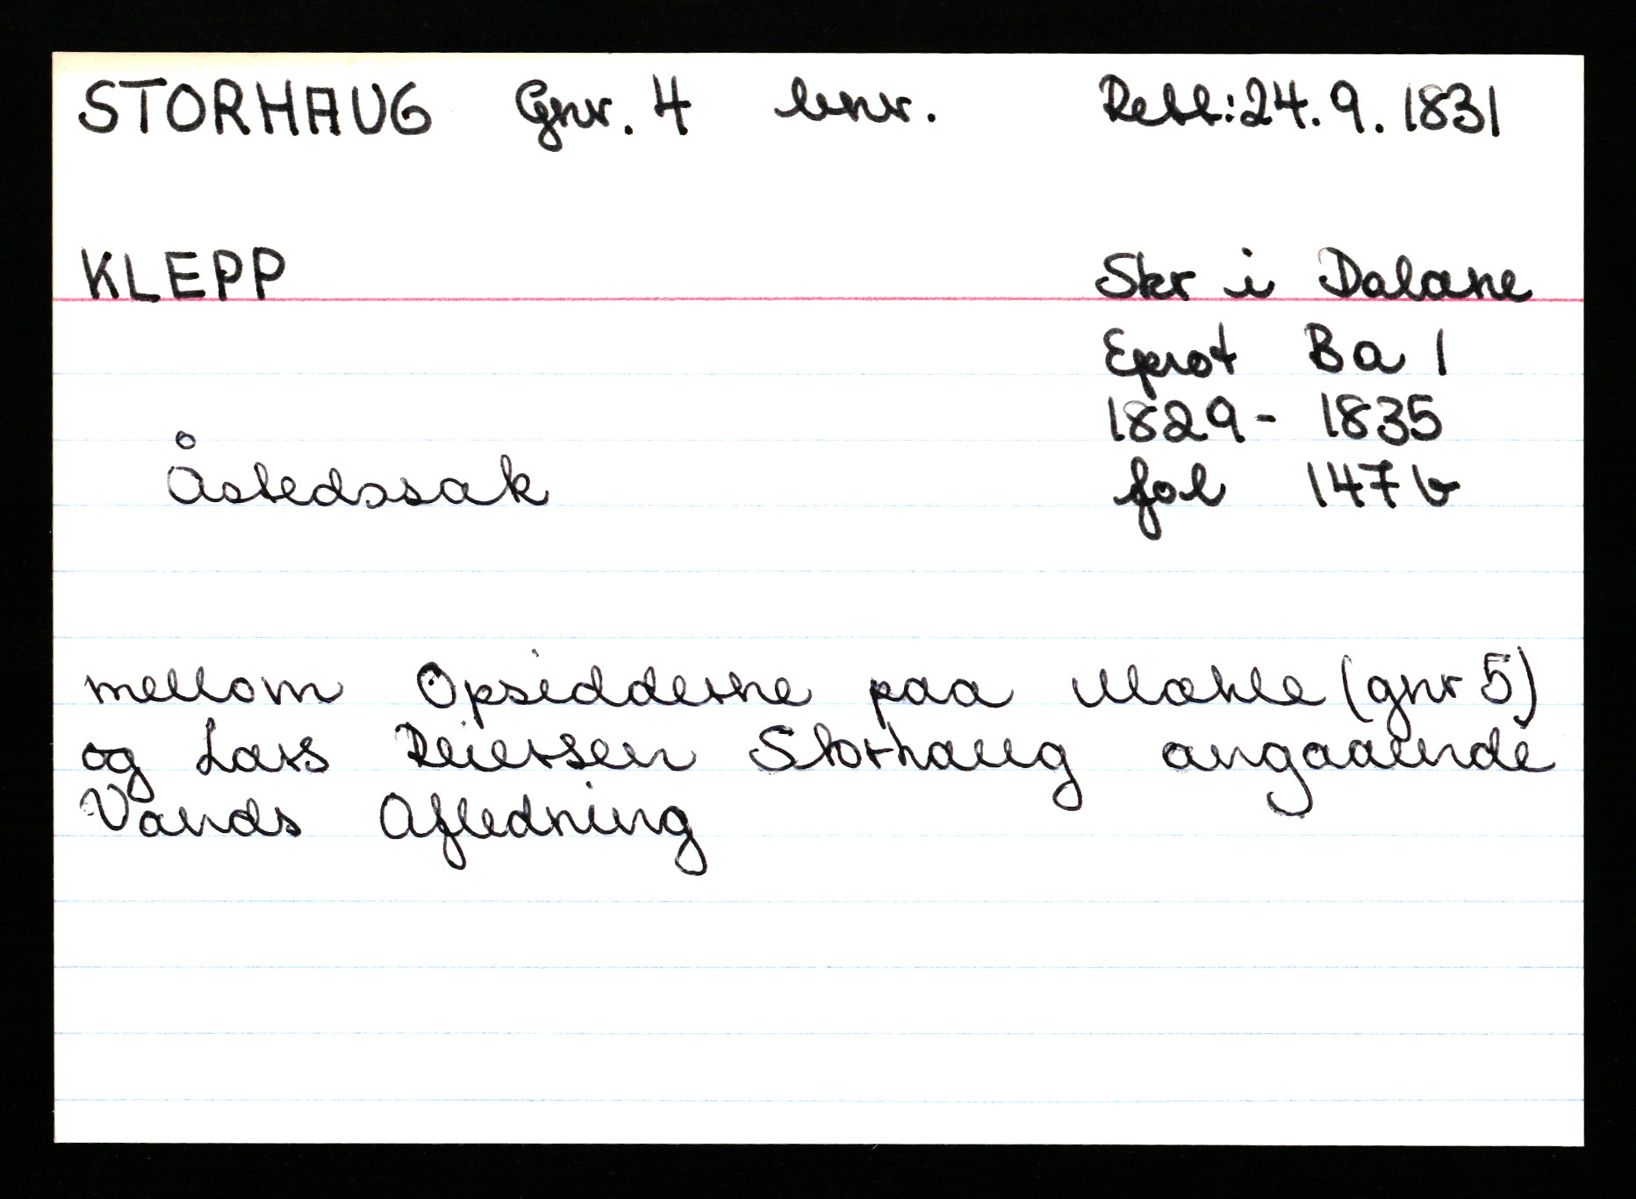 STORHAUG Gnr. 4 bnr. Rett: 24. 9. 1831
KLEPP Skr i Dalane
Eprot Ba 1
1829 - 1835
Åstedssak fol 147 b
mellom Opsidderne paa Mæhle (gnr 5)
og Lars Reiersen Storhaug angaaende
Vands Afledning